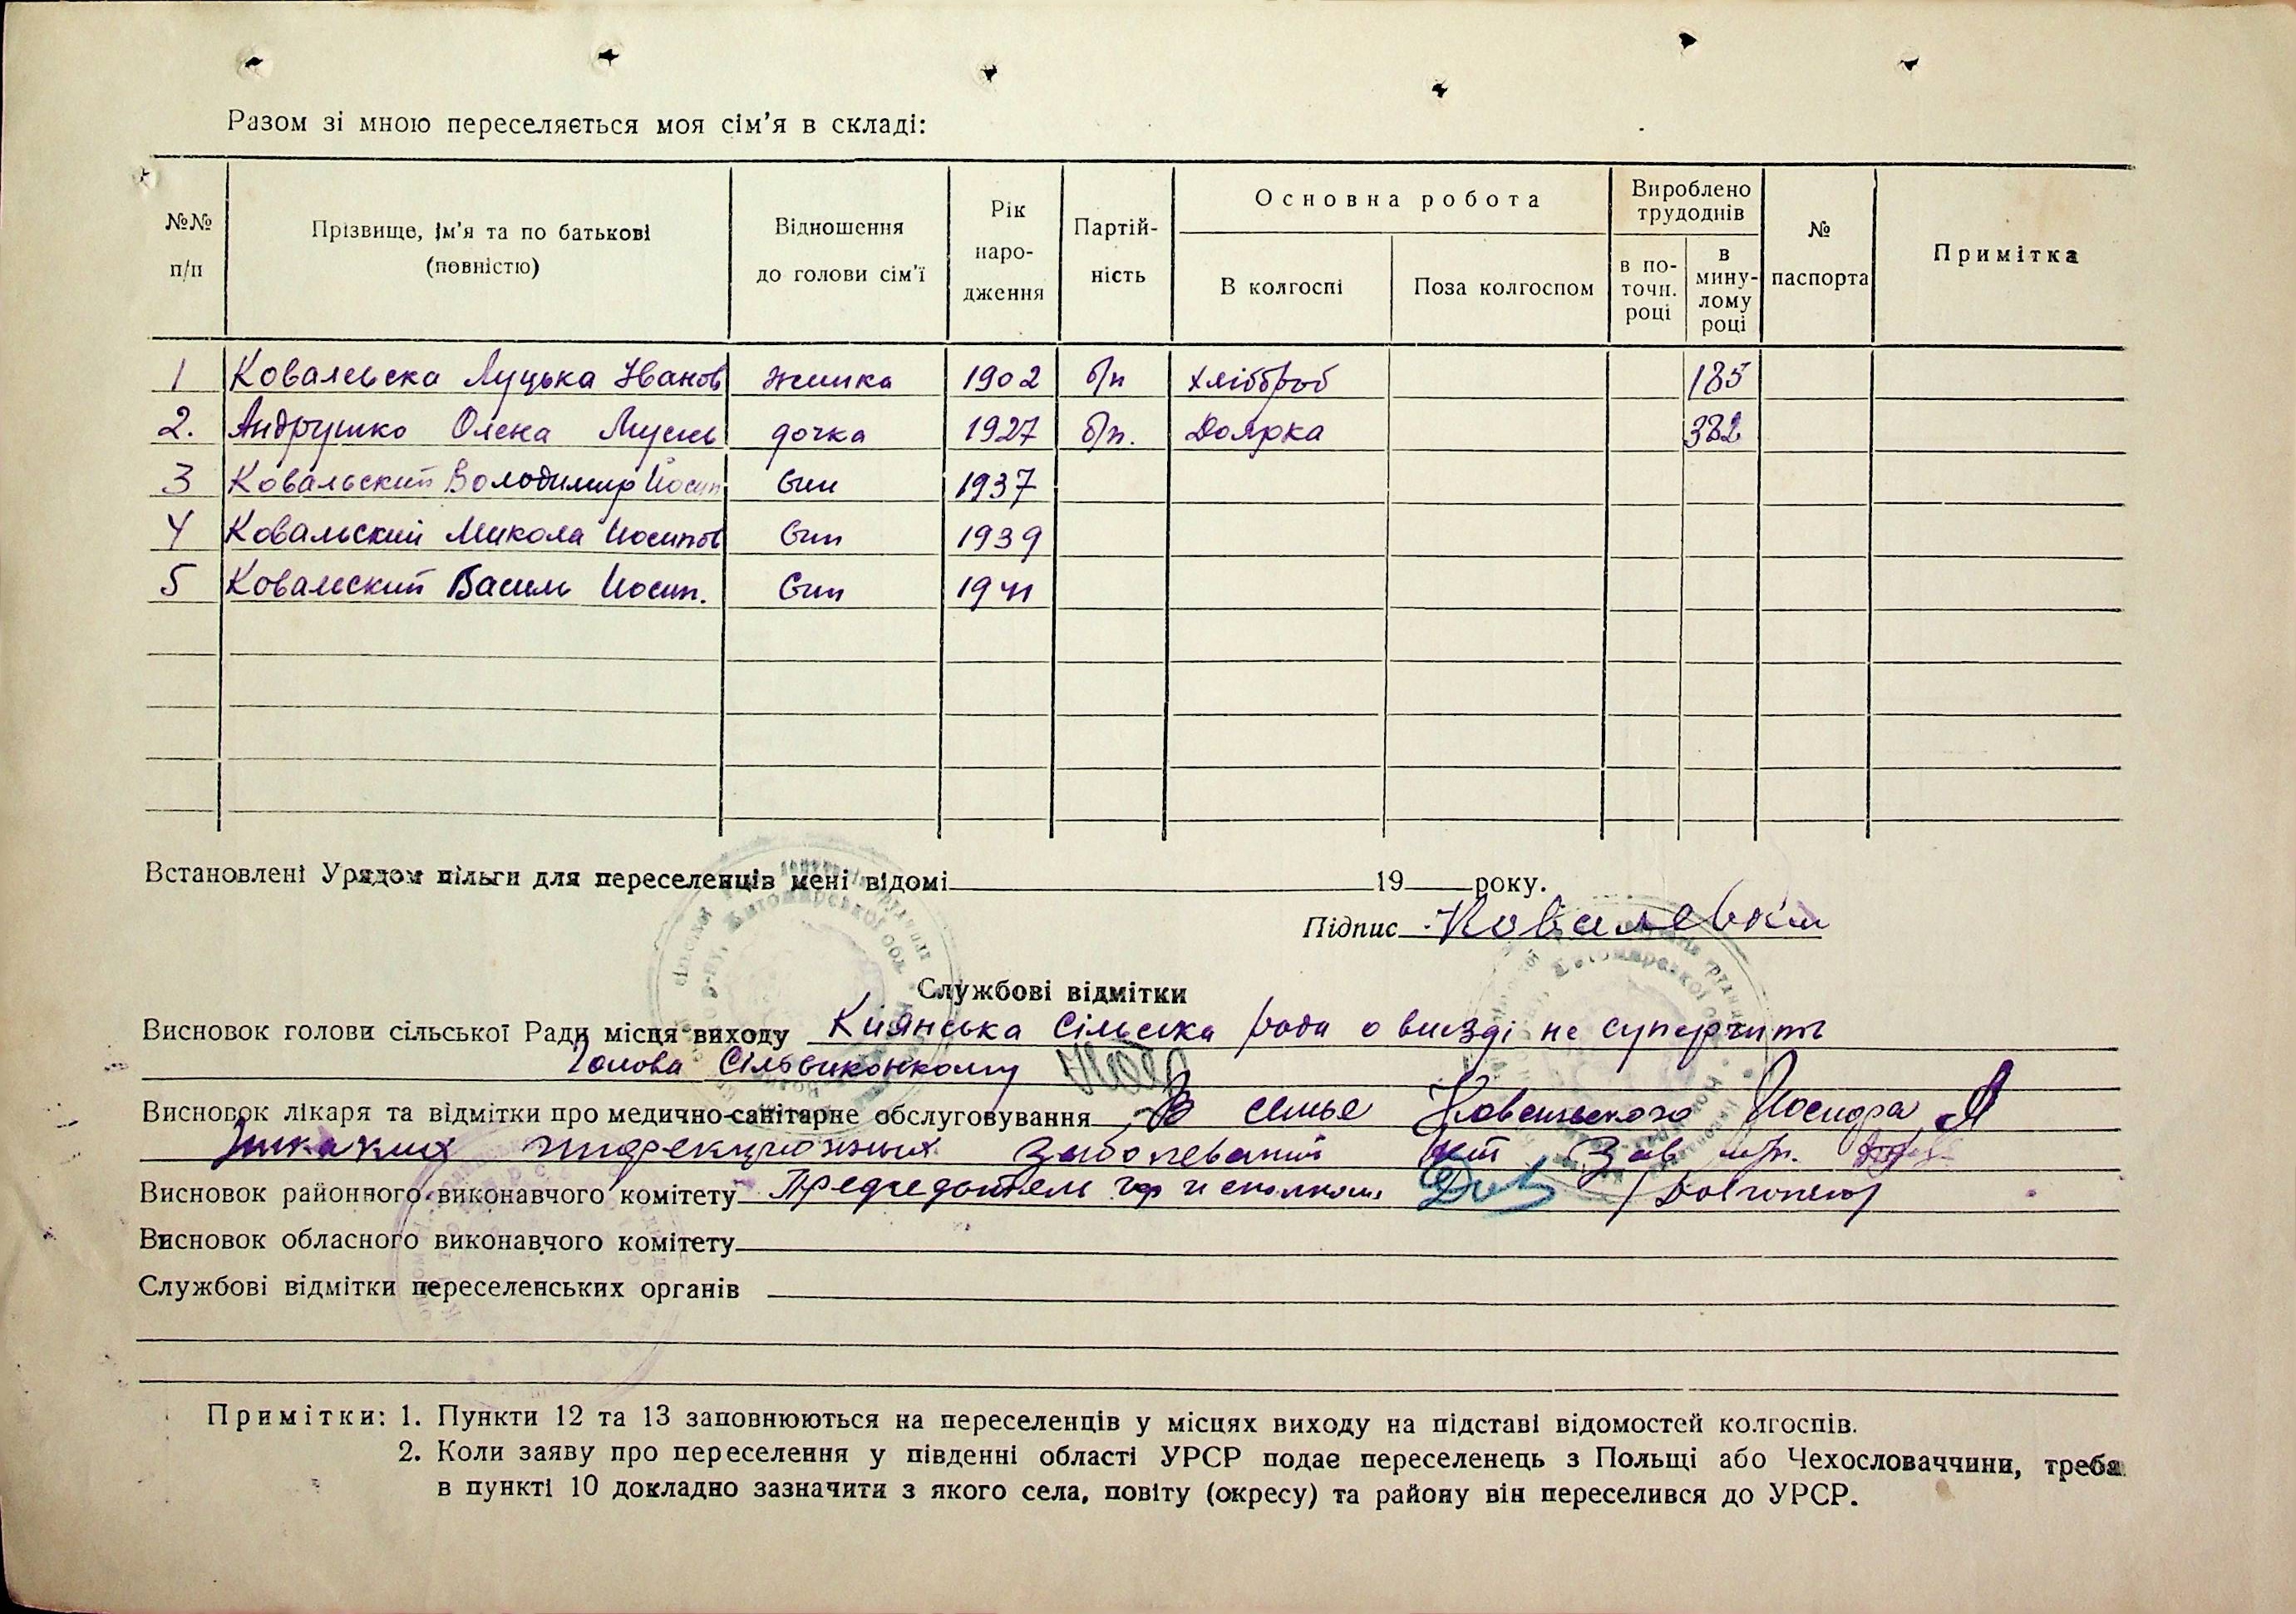 Разом зі мною переселяється моя сім'я в складі:
№№ п/п
Прізвище, ім'я та по батькові (повністю)
Відношення до голови сім'ї
Рік народження
Партійність
Основна робота
В колгоспі
Поза колгоспом
Вироблено трудоднів
в поточн. році
в минулому році
№ паспорта
Примітка
1 Ковалевска Луцька Іванов жинка 1902 б/п хлібороб 185
2. Андрушко Олена Мусей дочка 1927 б/п. Доярка 382
3 Ковальский Володимир Йосип син 1937
4 Ковальский Микола Йосипов син 1939
5 Ковалский Василь Йосип. син 1941
Встановлені Урядом пільги для переселенців мені відомі 19 року.
Підпис
Службові відмітки
Висновок голови сільської Ради місця виходу Киянська Сільска рада о виєзді не суперчить
Голова Сільвиконкому
Висновок лікаря та відмітки про медично-санітарне обслуговування В семье Ковальского Иосифа А
никаких инфекционных заболеваний нет Зав
Висновок районного виконавчого комітету Председатель исполкома
Висновок обласного виконавчого комітету
Службові відмітки переселенських органів
Примітки: 1. Пункти 12 та 13 заповнюються на переселенців у місцях виходу на підставі відомостей колгоспів.
2. Коли заяву про переселення у південні області УРСР подає переселенець з Польщі або Чехословаччини, треба
в пункті 10 докладно зазначити з якого села, повіту (окресу) та району він переселився до УРСР.